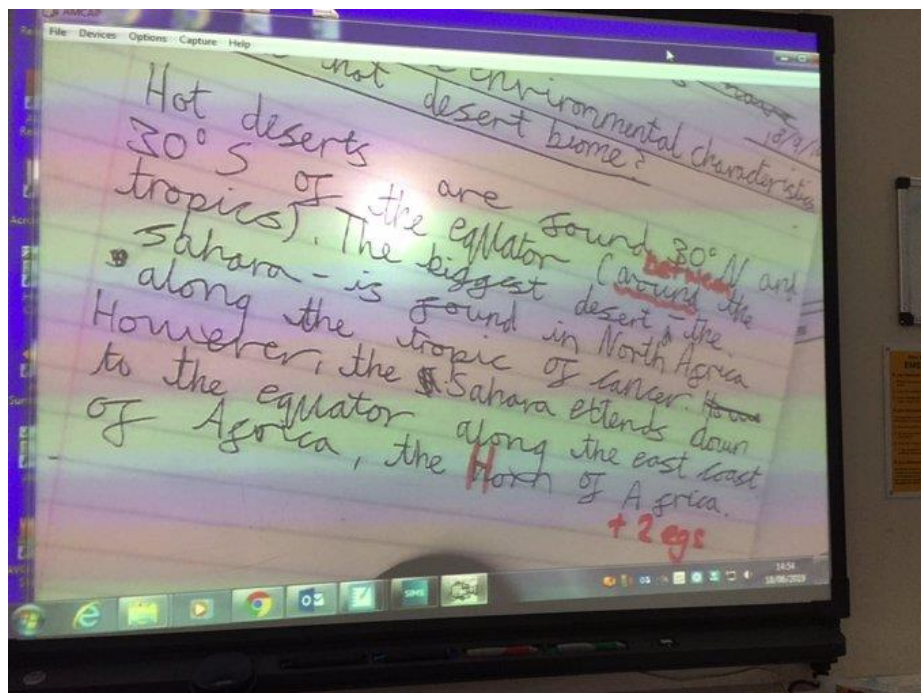 AMCAP
File Devices Options Capture Help
environmental characteristics
hot desert biome?
18/9/
Hot deserts are found 30° N and
30° S of the equator (around the
between
tropics). The biggest desert - the
Sahara - is found in North Africa
along the tropic of cancer.
However, the Sahara ettends down
to the equator along the east coast
of Africa, the Horn of Africa.
+ 2 egs
SIMS
14:54
18/06/2019